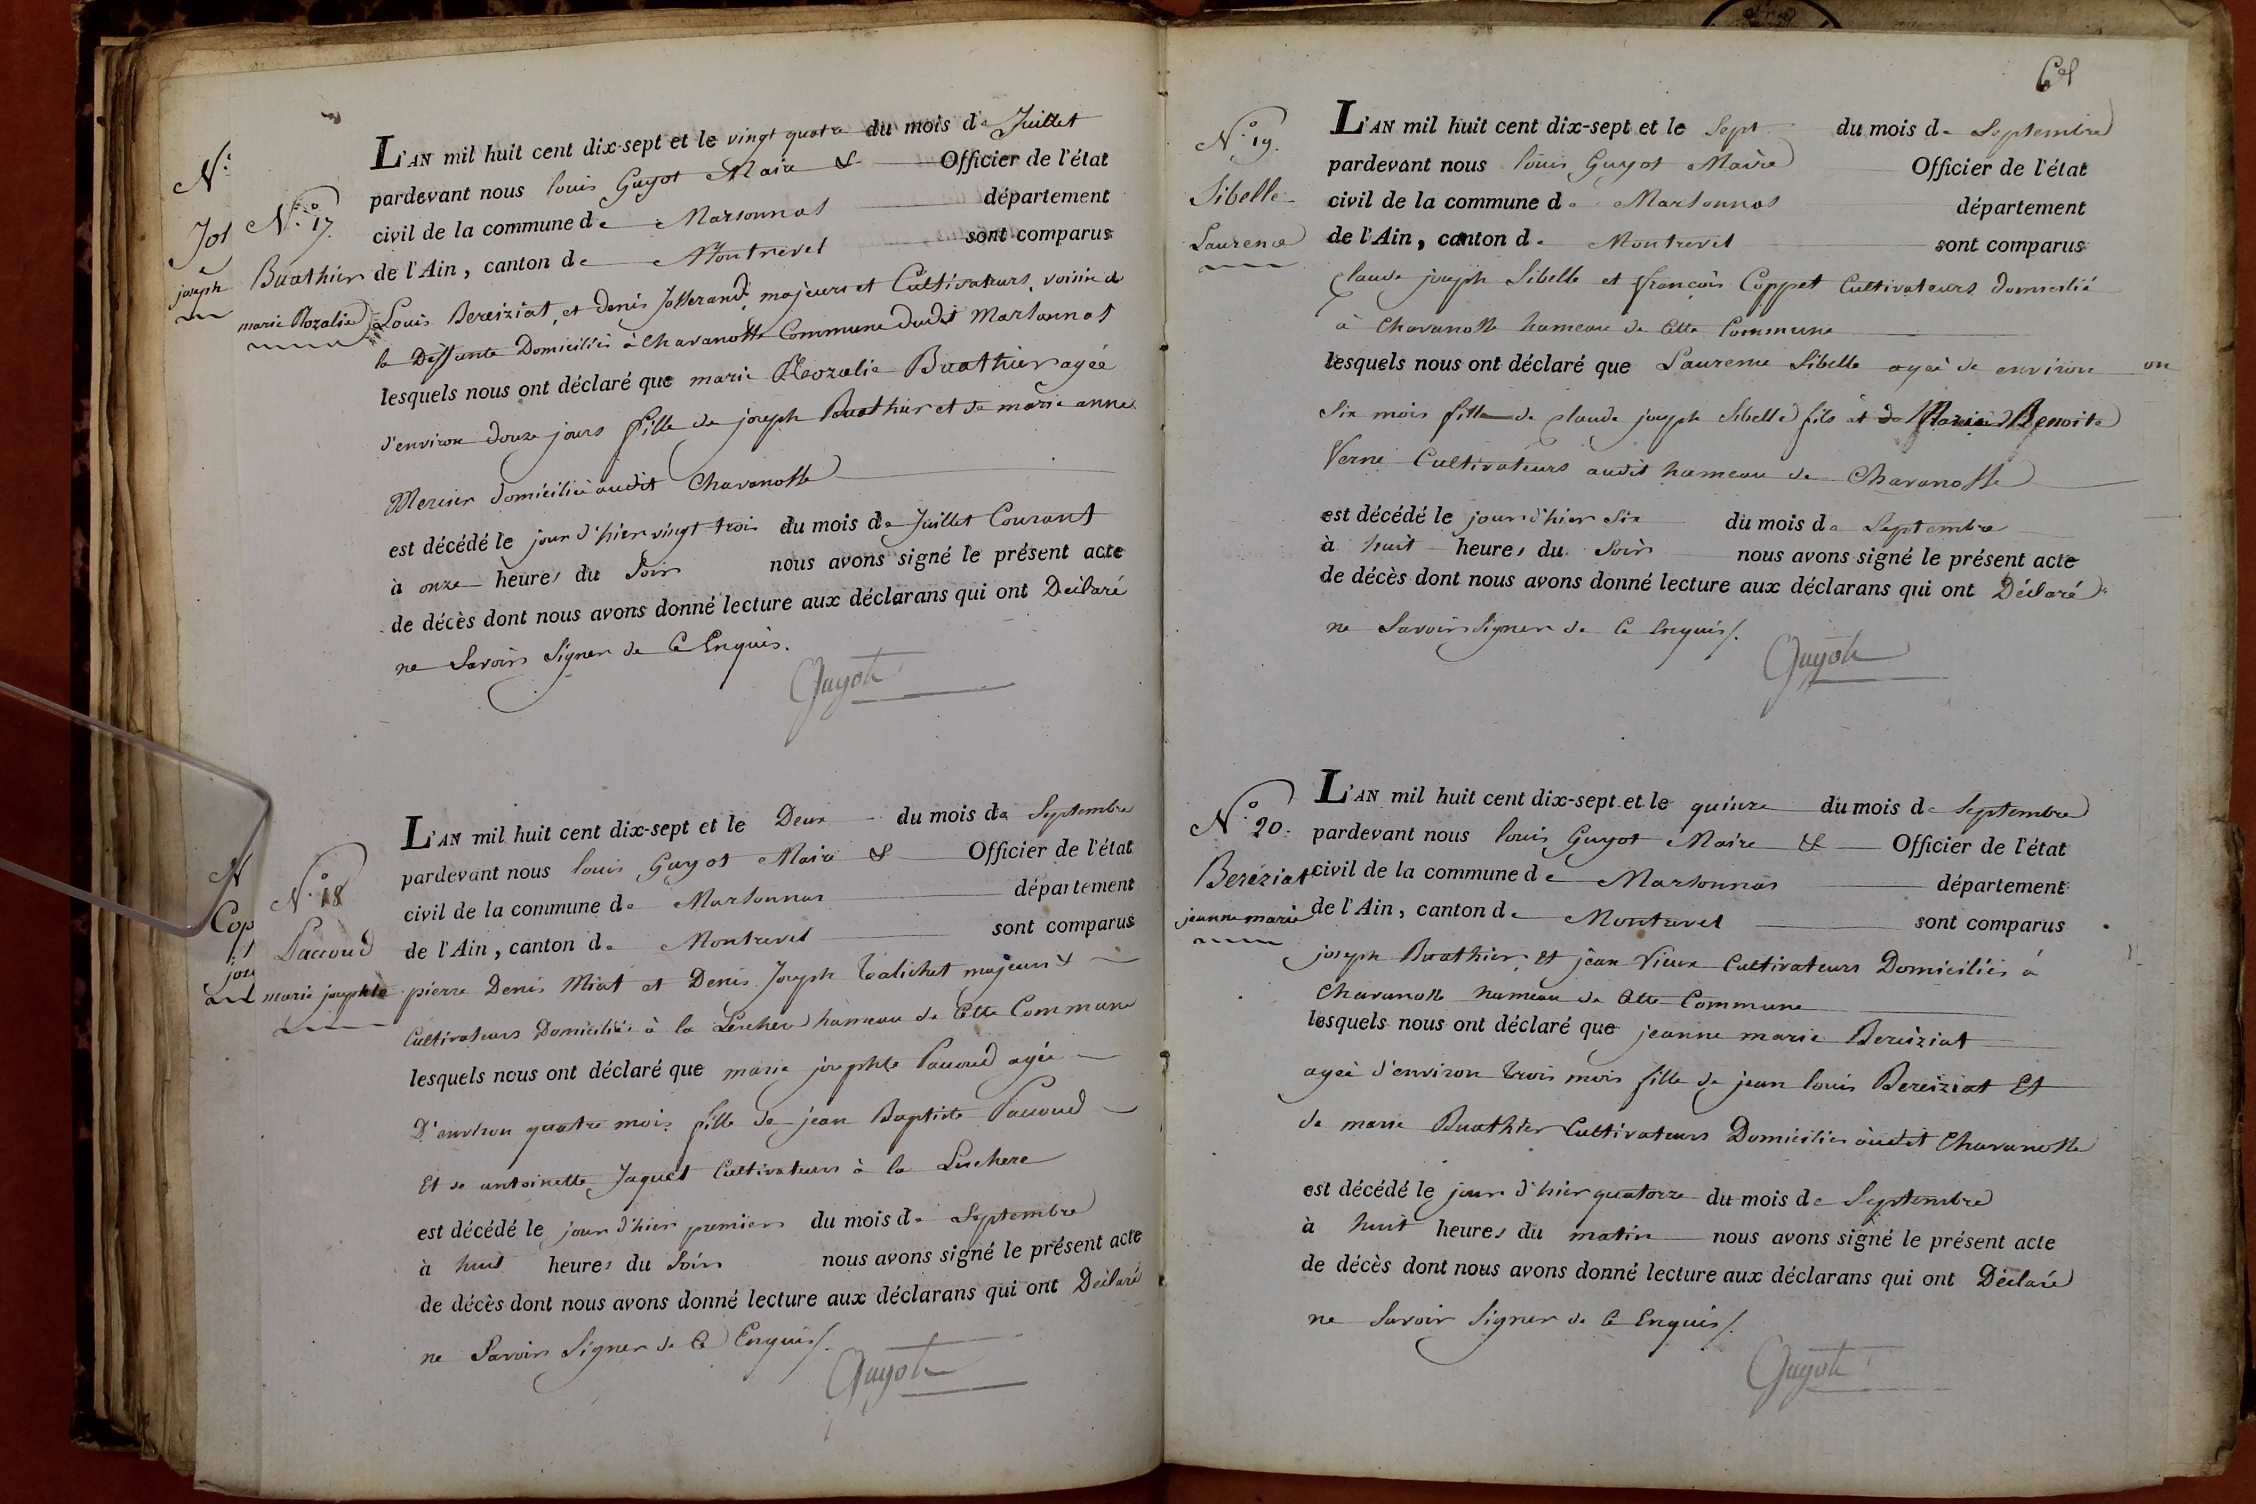 N.°
Jos
joseph
N.° 17.
Buathier
marie Rozalie
L'AN mil huit cent dix-sept et le vingt quatre du mois de Juillet
pardevant nous louis Guyot Maire & Officier de l'état
civil de la commune de Marsonnas département
de l'Ain, canton de Montrevel sont comparus
Louis Bereiziat, et denis Josserand, majeurs et Cultivateurs, voisin de
la Deffunte Domiciliés à Chavanosse Commune dudit Marsonnas
lesquels nous ont déclaré que marie Rozalie Buathier agée
d'environ douze jours fille de joseph Buathier et de marie anne
Mercier domiciliés audit Chavanosse
est décédé le jour d'hier vingt trois du mois de Juillet Courant
à onze heures du Soir nous avons signé le présent acte
de décès dont nous avons donné lecture aux déclarans qui ont Déclaré
ne Savoir Signer de Ce Enquis.
Guyot
N
Cop
jos
N.° 18
Paccoud
marie josephte
L'AN mil huit cent dix-sept et le Deux du mois de Septembre
pardevant nous louis Guyot Maire & Officier de l'état
civil de la commune de Marsonnas département
de l'Ain, canton de Montrevel sont comparus
pierre Denis Miat et Denis Joseph Talichet majeurs &
Cultivateurs Domiciliés à la Lechere hameau de Cette Commune
lesquels nous ont déclaré que marie josephte Paccoud agée
D'environ quatre mois fille de jean Baptiste Paccoud
Et de antoinette Jaquet Cultivateurs à la Lechere
est décédé le jour d'hier premier du mois de Septembre
à huit heures du Soir nous avons signé le présent acte
de décès dont nous avons donné lecture aux déclarans qui ont Déclaré
ne Savoir Signer de Ce Enquis/.
Guyot
N.° 19.
Sibelle
Laurence
L'AN mil huit cent dix-sept et le Sept du mois de Septembre
pardevant nous louis Guyot Maire Officier de l'état
civil de la commune de Marsonnas département
de l'Ain, canton de Montrevel sont comparus
Claude joseph Sibelle et françois Coppet Cultivateurs domicilié
à Chavanosse hameau de Cette Commune
lesquels nous ont déclaré que Laurence Sibelle agée de environ
Six mois fille de Claude joseph Sibelle fils et de Marie Benoite
Verne Cultivateurs audit hameau de Chavanosse
est décédé le jour d'hier Six du mois de Septembre
à huit heures du Soir nous avons signé le présent acte
de décès dont nous avons donné lecture aux déclarans qui ont Déclaré
ne Savoir Signer de Ce Enquis/.
Guyot
N.° 20.
Bereziat
jeanne marie
L'AN mil huit cent dix-sept et le quinze du mois de Septembre
pardevant nous louis Guyot Maire & Officier de l'état
civil de la commune de Marsonnas département
de l'Ain, canton de Montrevel sont comparus
joseph Buathier, Et jean Vieux Cultivateurs Domiciliés à
Chavanosse hameau de Cette Commune
lesquels nous ont déclaré que jeanne marie Bereiziat
agée d'environ trois mois fille de jean louis Bereiziat Et
de marie Buathier Cultivateurs Domiciliés audit Chavanosse
est décédé le jour d'hier quatorze du mois de Septembre
à huit heures du matin nous avons signé le présent acte
de décès dont nous avons donné lecture aux déclarans qui ont Déclaré
ne Savoir Signer de Ce Enquis/.
Guyot